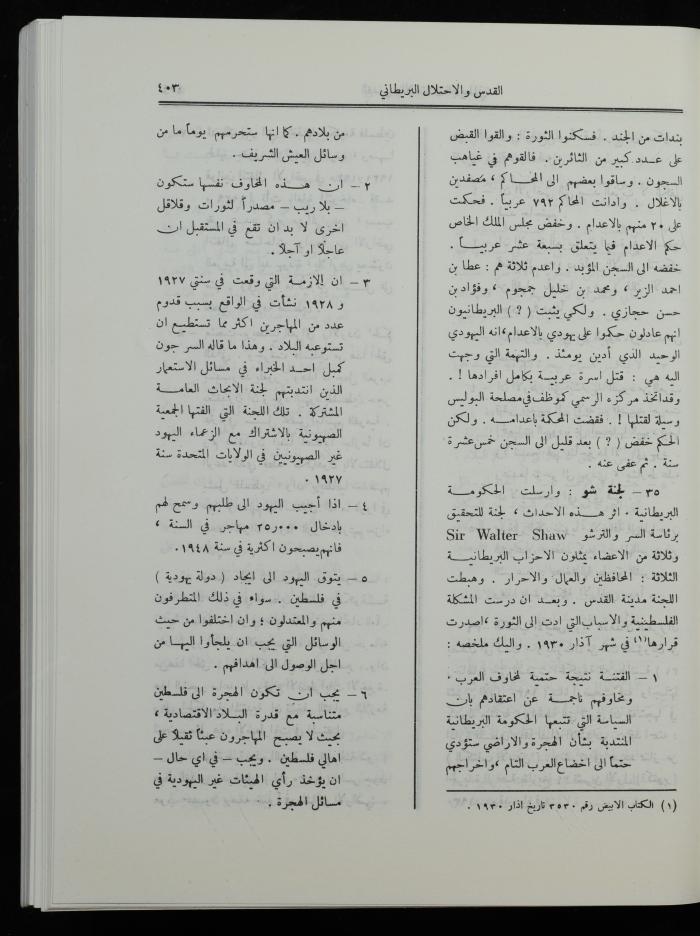 القدس والاحتلال البريطاني
٤٠٣
بندات من الجند . فسكنوا الثورة : والقوا القبض
على عدد كبير من الثائرين . فالقوهم في غياهب
السجون . وساقوا بعضهم الى المحاكم ، مصفدين
بالاغلال . وادانت المحاكم ٧٩٢ عربياً . فحكت
على ٢٠ منهم بالاعدام . وخفض مجلس الملك الخاص
حكم الاعدام فيا يتعلق بسبعة عشر عربياً .
خفضه الى السجن المؤبد . واعدم ثلاثة هم : عطا بن
احمد الزير ، ومحمد بن خليل جمجوم ، وفؤاد بن
حسن حجازي . ولكي يثبت ( ? ) البريطانيون
انهم عادلون حكموا على يهودي بالاعدام ، انه اليهودي
الوحيد الذي أدين يومئذ . والتهمة التي وجهت
اليه هي : قتل اسرة عربية بكامل افرادها ! .
وقد اتخذ مركزه الرسمي كموظف في مصلحة البوليس
وسيلة لقتلها ! . فقضت المحكمة باعدامه . ولكن
الحكم خفض ( ? ) بعد قليل الى السجن خمس عشرة
سنة . ثم عفى عنه .
٣٥ – لجنة شو : وارسلت الحكومة
البريطانية . اثر هذه الاحداث ، لجنة للتحقيق
برئاسة السر والترشو Sir Walter Shaw
وثلاثة من الاعضاء يمثلون الاحزاب البريطانية
الثلاثة : المحافظين والعمال والاحرار . وهبطت
اللجنة مدينة القدس . وبعد ان درست المشكلة
الفلسطينية والاسباب التي ادت الى الثورة ، اصدرت
قرارها(١) في شهر آذار ١٩٣٠ . واليك ملخصه :
١ – الفتنة نتيجة حتمية لمخاوف العرب .
ومخاوفهم ناجمة عن اعتقادهم بان
السياسة التي تتبعها الحكومة البريطانية
المنتدبة بشأن الهجرة والاراضي ستؤدي
حتماً الى اخضاع العرب التام ، واخراجهم
(١) الكتاب الابيض رقم ٣٥٣٠ تاريخ اذار ١٩٣٠ .
من بلادهم . كما انها ستحرمهم يوماً ما من
وسائل العيش الشريف .
٢ – ان هذه المخاوف نفسها ستكون
– بلا ريب – مصدراً لثورات وقلاقل
اخرى لا بد ان تقع في المستقبل ان
عاجلاً او آجلاً .
٣ – ان الازمة التي وقعت في سنتي ١٩٢٧
و ١٩٢٨ نشأت في الواقع بسبب قدوم
عدد من المهاجرين اكثر مما تستطيع ان
تستوعبه البلاد . وهذا ما قاله السر جون
كمبل احد الخبراء في مسائل الاستعمار
الذين انتدبتهم لجنة الابحاث العامة
المشتركة . تلك اللجنة التي الفتها الجمعية
الصهيونية بالاشتراك مع الزعماء اليهود
غير الصهيونيين في الولايات المتحدة سنة
١٩٢٧ .
٤ – اذا أجيب اليهود الى طلبهم وسمح لهم
بادخال ٢٥٫٠٠٠ مهاجر في السنة ،
فانهم يصبحون اكثرية في سنة ١٩٤٨ .
٥ – يتوق اليهود الى ايجاد ( دولة يهودية )
في فلسطين . سواء في ذلك المتطرفون
منهم والمعتدلون ؛ وان اختلفوا من حيث
الوسائل التي يجب ان يلجأوا اليها من
اجل الوصول الى اهدافهم .
٦ – يجب ان تكون الهجرة الى فلسطين
متناسبة مع قدرة البلاد الاقتصادية ،
بحيث لا يصبح المهاجرون عبئاً ثقيلاً على
اهالي فلسطين . ويجب – في اي حال –
ان يؤخذ رأي الهيئات غير اليهودية في
مسائل الهجرة .